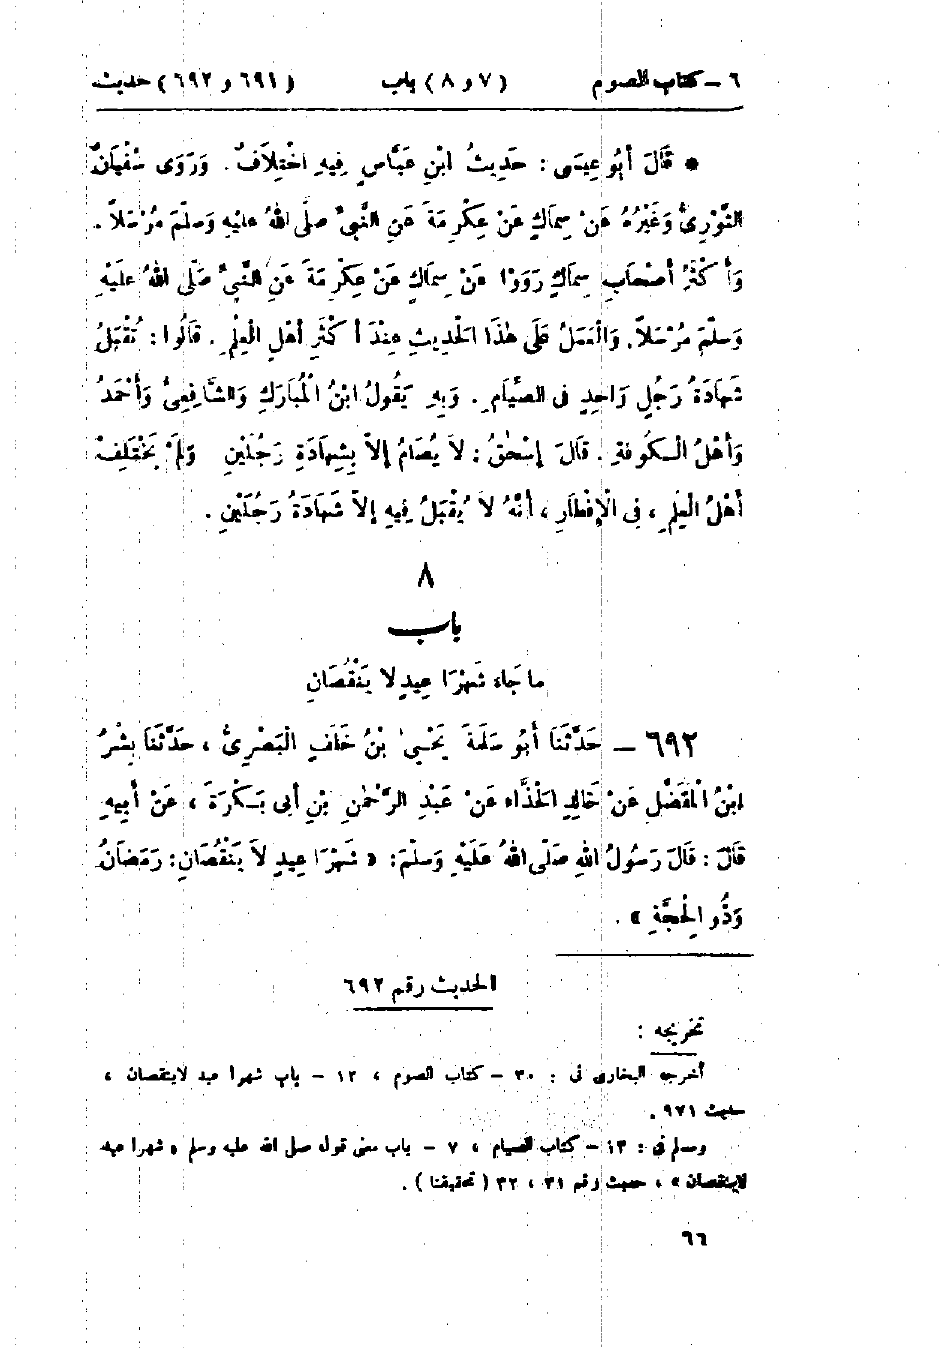 ٦ – كتاب الصوم (٧ و ٨) باب (٦٩١ و ٦٩٢) حديث
● قَالَ أَبُو عِيسَى : حَدِيثُ ابْنِ عَبَّاسٍ فِيهِ اخْتِلاَفٌ . وَرَوَى سُفْيَانُ
الثَّوْرِىُّ وَغَيْرُهُ عَنْ سِمَاكٍ عَنْ عِكْرِمَةَ عَنِ النَّبِىِّ صَلَّى اللهُ عَلَيْهِ وَسَلَّمَ مُرْسَلاً .
وَأَكْثَرُ أَصْحَابِ سِمَاكٍ رَوَوْا عَنْ سِمَاكٍ عَنْ عِكْرِمَةَ عَنِ النَّبِىِّ صَلَّى اللهُ عَلَيْهِ
وَسَلَّمَ مُرْسَلاً. وَالْعَمَلُ عَلَى هٰذَا الْحَدِيثِ عِنْدَ أَكْثَرِ أَهْلِ الْعِلْمِ . قَالُوا : تُقْبَلُ
شَهَادَةُ رَجُلٍ وَاحِدٍ فِى الصِّيَامِ . وَبِهِ يَقُولُ ابْنُ الْمُبَارَكِ وَالشَّافِعِىُّ وَأَحْمَدُ
وَأَهْلُ الْكُوفَةِ . قَالَ إِسْحٰقُ : لاَ يُصَامُ إِلاَّ بِشَهَادَةِ رَجُلَيْنِ وَلَمْ يَخْتَلِفْ
أَهْلُ الْعِلْمِ ، فِى الْإِفْطَارِ ، أَنَّهُ لاَ يُقْبَلُ فِيهِ إِلاَّ شَهَادَةُ رَجُلَيْنِ .
٨
باب
ما جَاءَ شَهْرَا عِيدٍ لا يَنْقُصَانِ
٦٩٢ – حَدَّثَنَا أَبُو سَلَمَةَ يَحْيىٰ بْنُ خَلَفٍ الْبَصْرِىُّ ، حَدَّثَنَا بِشْرُ
ابْنُ الْمُفَضَّلِ عَنْ خَالِدٍ الحَذَّاءِ عَنْ عَبْدِ الرَّحْمٰنِ بْنِ أَبِى بَكْرَةَ ، عَنْ أَبِيهِ
قَالَ : قَالَ رَسُولُ اللهِ صَلَّى اللهُ عَلَيْهِ وَسَلَّمَ: « شَهْرَا عِيدٍ لاَ يَنْقُصَانِ: رَمَضَانُ
وَذُو الْحِجَّةِ » .
الحديث رقم ٦٩٢
تخريجه :
أخرجه البخارى فى : ٣٠ – كتاب الصوم ، ١٢ – باب شهرا عيد لاينقصان ،
حديث ٩٧١ .
ومسلم فى : ١٣ – كتاب الصيام ، ٧ – باب معنى قوله صلى الله عليه وسلم « شهرا عيد
لاينقصان » ، حديث رقم ٣١ ، ٣٢ ( تحقيقنا ) .
٦٦